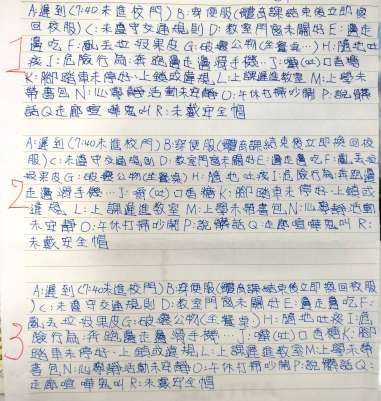 A:遲到(7:40未進校門) B:穿便服(體育課結束後立即換
回校服) C:未遵守交通規則 D:教室門窗未關好 E:邊走
邊吃 F:亂丟垃圾果皮 G:破壞公物(坐餐桌…) H:隨地吐
痰 I:危險行為:奔跑邊走邊滑手機… J:嚼(吐)口香糖
K:腳踏車未停好、上鎖或違規 L:上課遲進教室 M:上學未
帶書包 N:心學靜活動未安靜 O:午休打掃吵鬧 P:說髒話
Q:走廊喧嘩亂叫 R:未戴安全帽
1
A:遲到(7:40未進校門) B:穿便服(體育課結束後立即換回校
服) C:未遵守交通規則 D:教室門窗未關好 E:邊走邊吃 F:亂丟垃
圾果皮 G:破壞公物(坐餐桌) H:隨地吐痰 I:危險行為:奔跑邊
走邊滑手機… J:嚼(吐)口香糖 K:腳踏車未停好、上鎖或
違規、L:上課遲進教室 M:上學未帶書包、N:心學靜活動
未安靜 O:午休打掃吵鬧 P:說髒話 Q:走廊喧嘩亂叫 R:
未戴安全帽
2
A:遲到(7:40未進校門) B:穿便服(體育課結束後立即換回校
服) C:未遵守交通規則 D:教室門窗未關好 E:邊走邊吃 F:
亂丟垃圾果皮 G:破壞公物(坐餐桌) H:隨地吐痰 I:危
險行為:奔跑邊走邊滑手機… J:嚼(吐)口香糖 K:腳
踏車未停好、上鎖或違規 L:上課遲進教室 M:上學未帶
書包 N:心學靜活動未安靜 O:午休打掃吵鬧 P:說髒話 Q:
走廊喧嘩亂叫 R:未戴安全帽
3